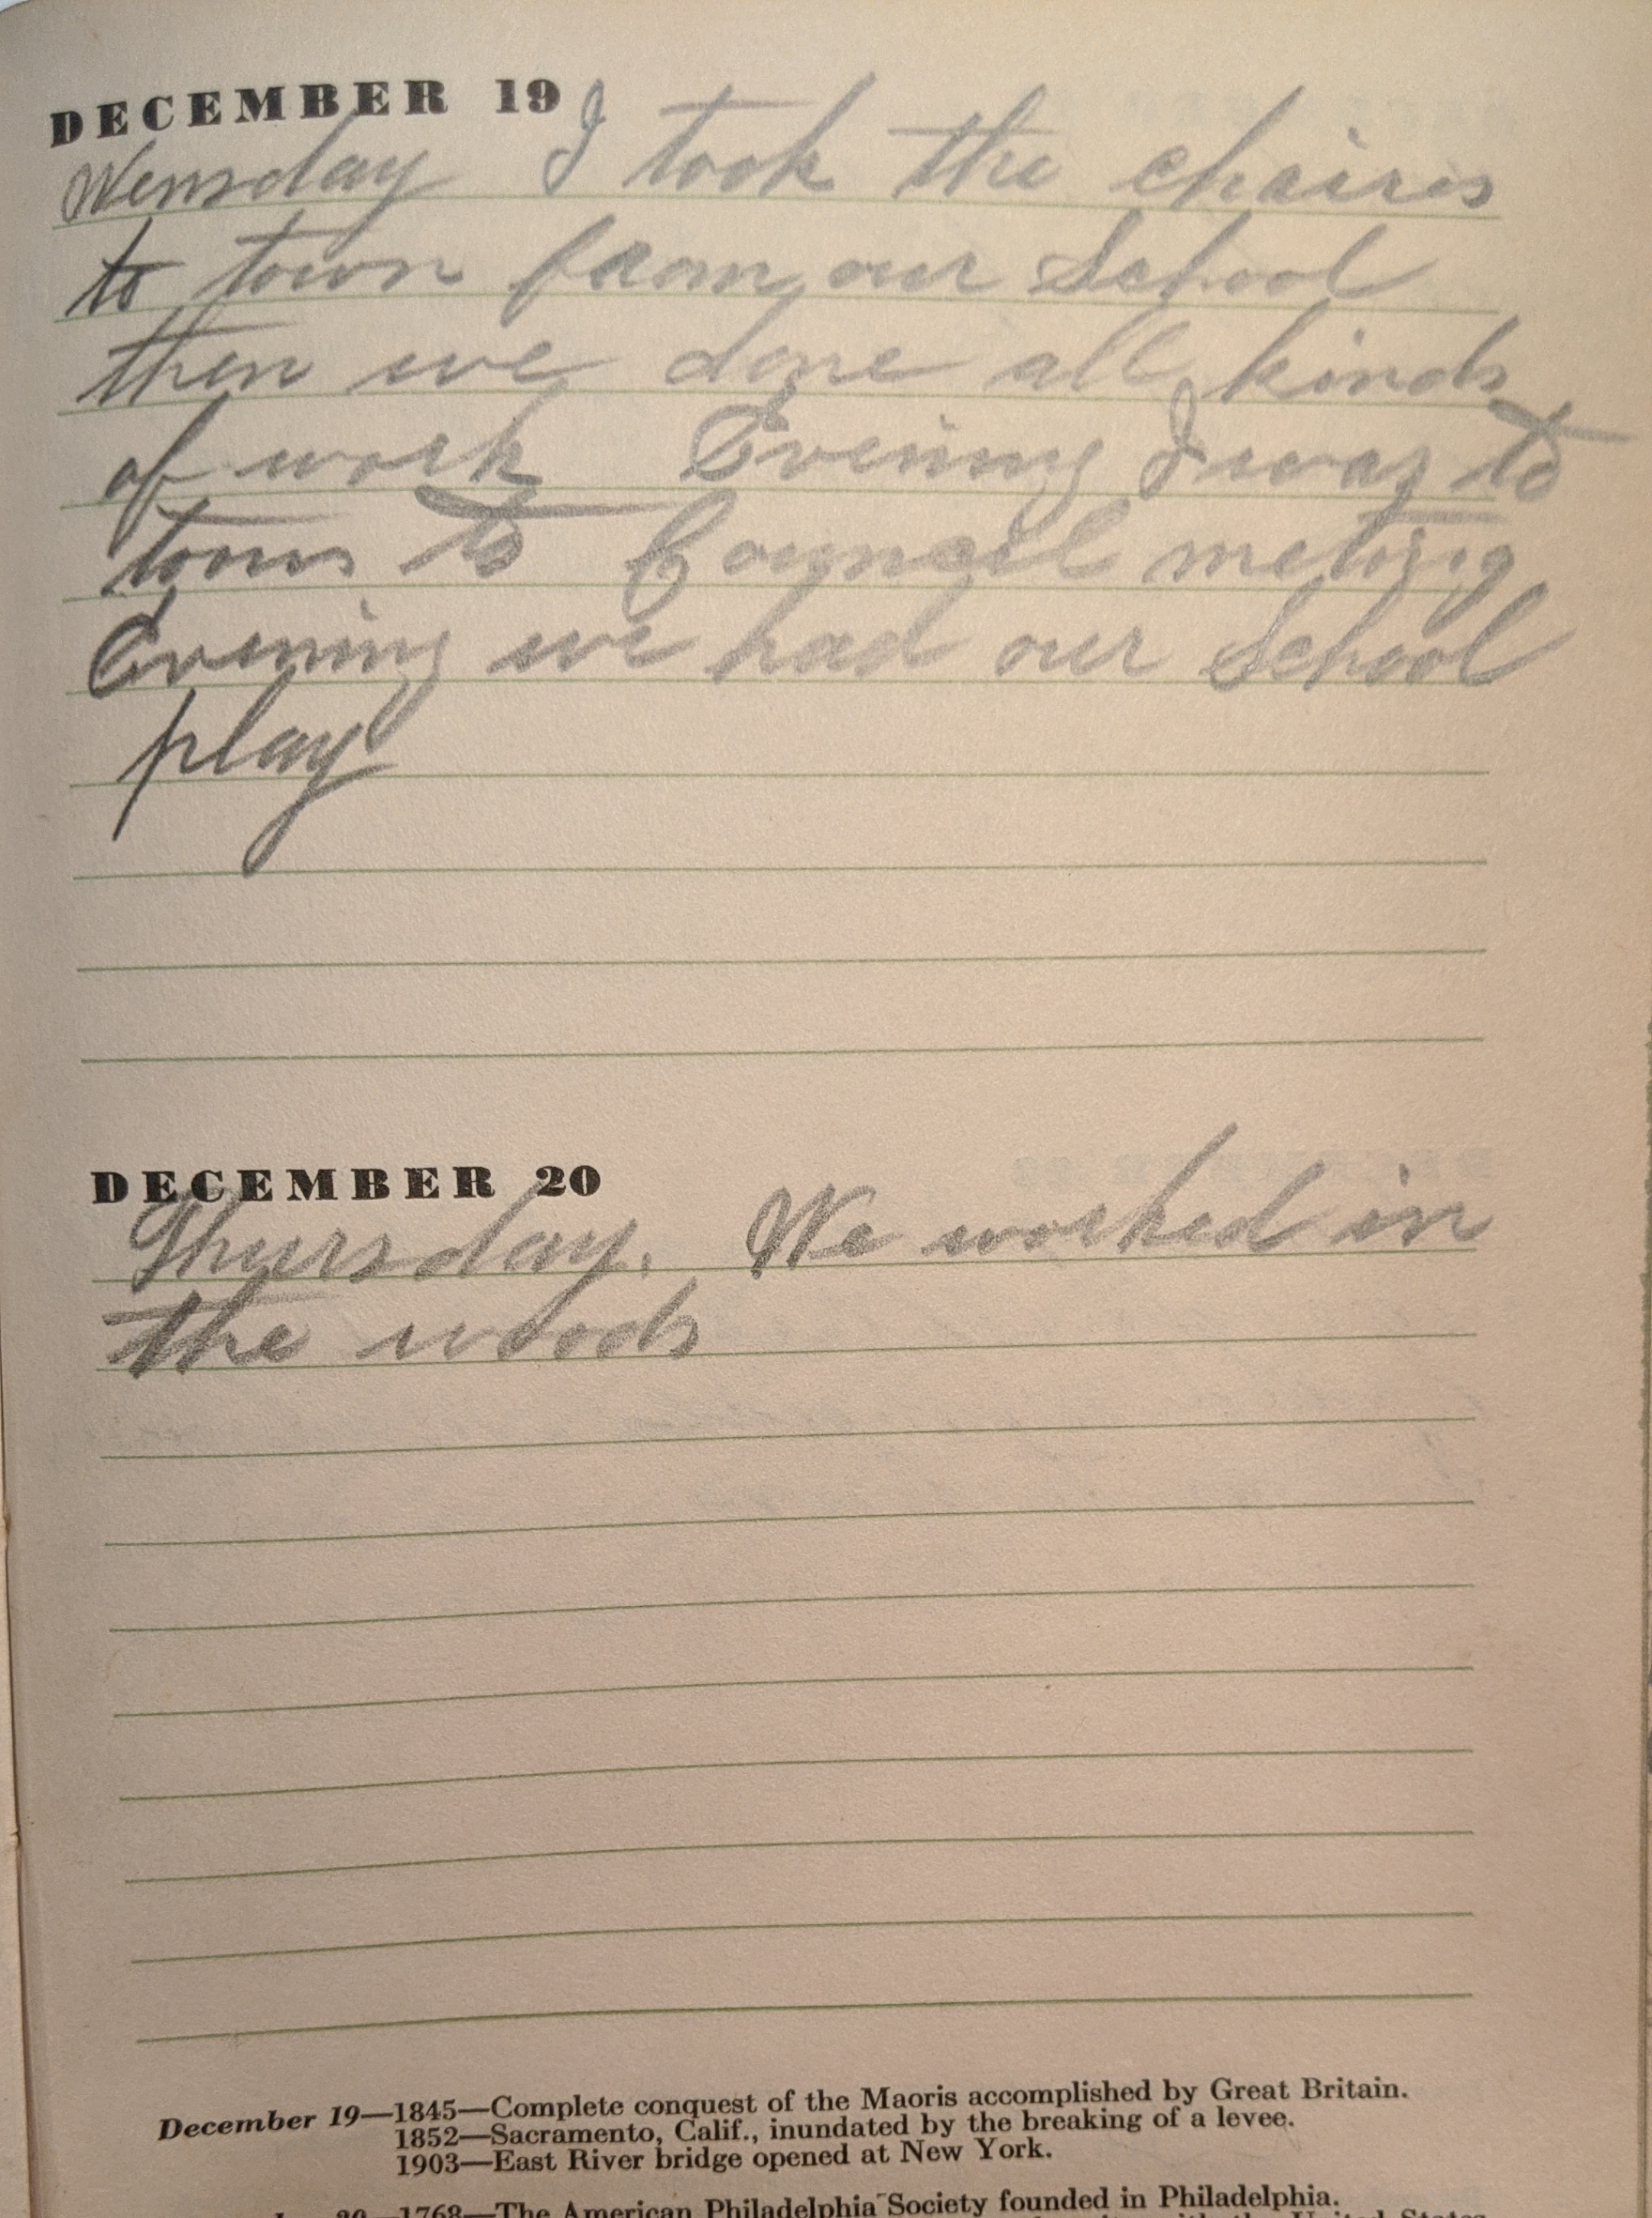 DECEMBER 19 I took the chaires
Wensday
to town from our School
then we done all kinds
of work Evening I was to
town to Council meting
Evening we had our School
play
DECEMBER 20
Thursday. We worked in
the woods
December 19—1845—Complete conquest of the Maoris accomplished by Great Britain.
1852—Sacramento, Calif., inundated by the breaking of a levee.
1903—East River bridge opened at New York.
20—1768—The American Philadelphia Society founded in Philadelphia.